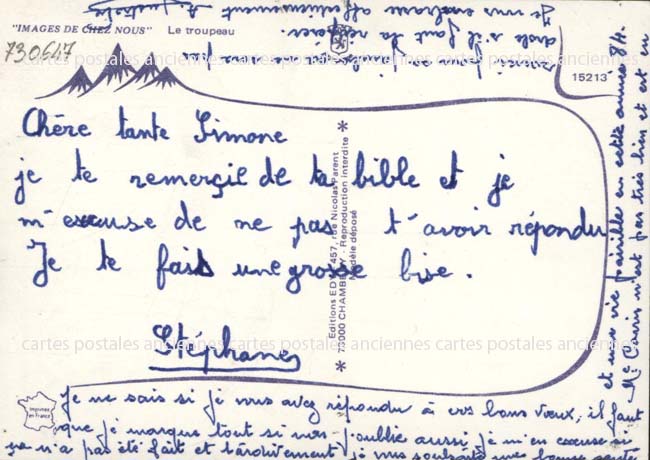 "IMAGES DE CHEZ NOUS" Le troupeau
730647
15213
Chère tante Simone
je te remerçie de ta bible et je
m'excuse de ne pas t'avoir répondu
Je te fais une grosse bise.
Stéphane
Editions EDY - 457, rue Nicolas Parent
73000 CHAMBERY - Reproduction interdite
Modèle déposé
Imprimé en France
cartes postales anciennes cartes postales anciennes cartes postales anciennes
Je ne sais si je vous avez répondu à vos bons vœux, il faut
que je marque tout si non j'oublie aussi je m'en excuse si
ça n'a pas été fait et tardivement je vous souhaite une bonne santé
et une vie paisible en cette année 84.
Mr n'est pas très bien et est en
si il faut la
Je vous embrasse affectueusement